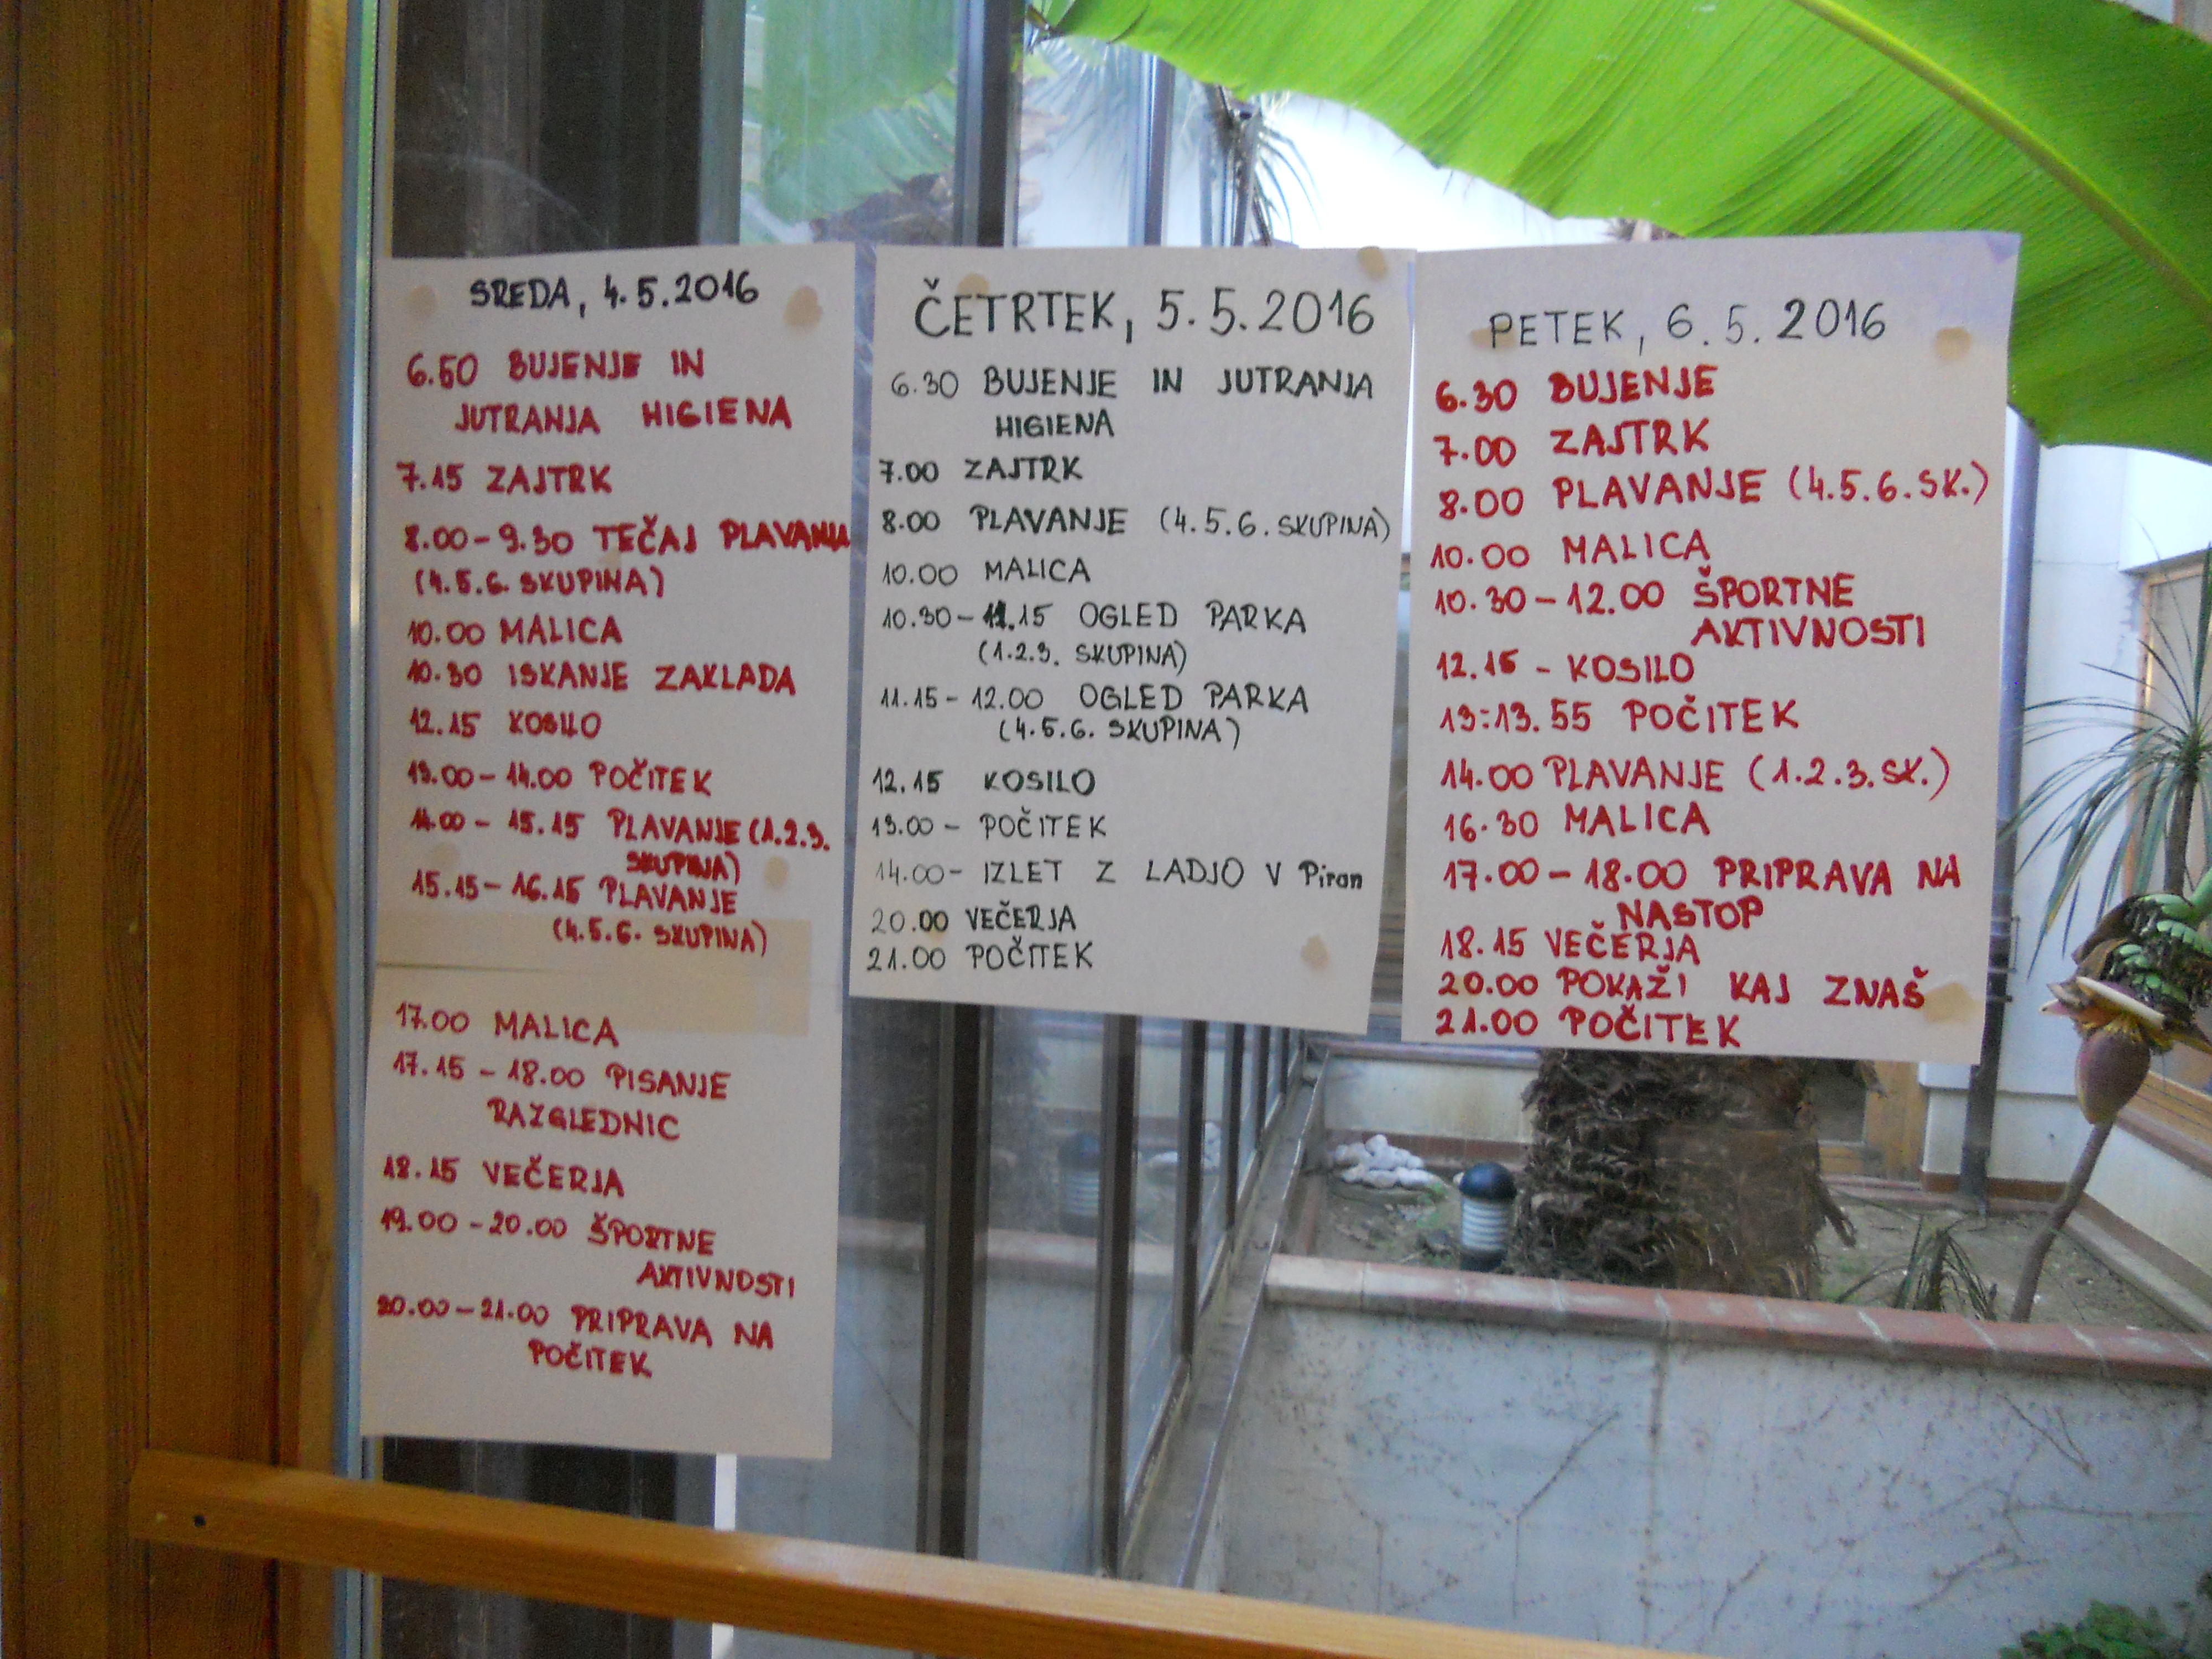 SREDA, 4.5.2016
6.50 BUJENJE IN
JUTRANJA HIGIENA
7.15 ZAJTRK
8.00-9.30 TEČAJ PLAVANJA
(4.5.6. SKUPINA)
10.00 MALICA
10.30 ISKANJE ZAKLADA
12.15 KOSILO
13.00-14.00 POČITEK
14.00-15.15 PLAVANJE (1.2.3.
SKUPINA)
15.15-16.15 PLAVANJE
(4.5.6. SKUPINA)
17.00 MALICA
17.15-18.00 PISANJE
RAZGLEDNIC
18.15 VEČERJA
19.00-20.00 ŠPORTNE
AKTIVNOSTI
20.00-21.00 PRIPRAVA NA
POČITEK
ČETRTEK, 5.5.2016
6.30 BUJENJE IN JUTRANJA
HIGIENA
7.00 ZAJTRK
8.00 PLAVANJE (4.5.6. SKUPINA)
10.00 MALICA
10.30-11.15 OGLED PARKA
(1.2.3. SKUPINA)
11.15-12.00 OGLED PARKA
(4.5.6. SKUPINA)
12.15 KOSILO
13.00- POČITEK
14.00- IZLET Z LADJO V Piran
20.00 VEČERJA
21.00 POČITEK
PETEK, 6.5.2016
6.30 BUJENJE
7.00 ZAJTRK
8.00 PLAVANJE (4.5.6.SK.)
10.00 MALICA
10.30-12.00 ŠPORTNE
AKTIVNOSTI
12.15 - KOSILO
13:13.55 POČITEK
14.00 PLAVANJE (1.2.3.SK.)
16.30 MALICA
17.00-18.00 PRIPRAVA NA
NASTOP
18.15 VEČERJA
20.00 POKAŽI KAJ ZNAŠ
21.00 POČITEK